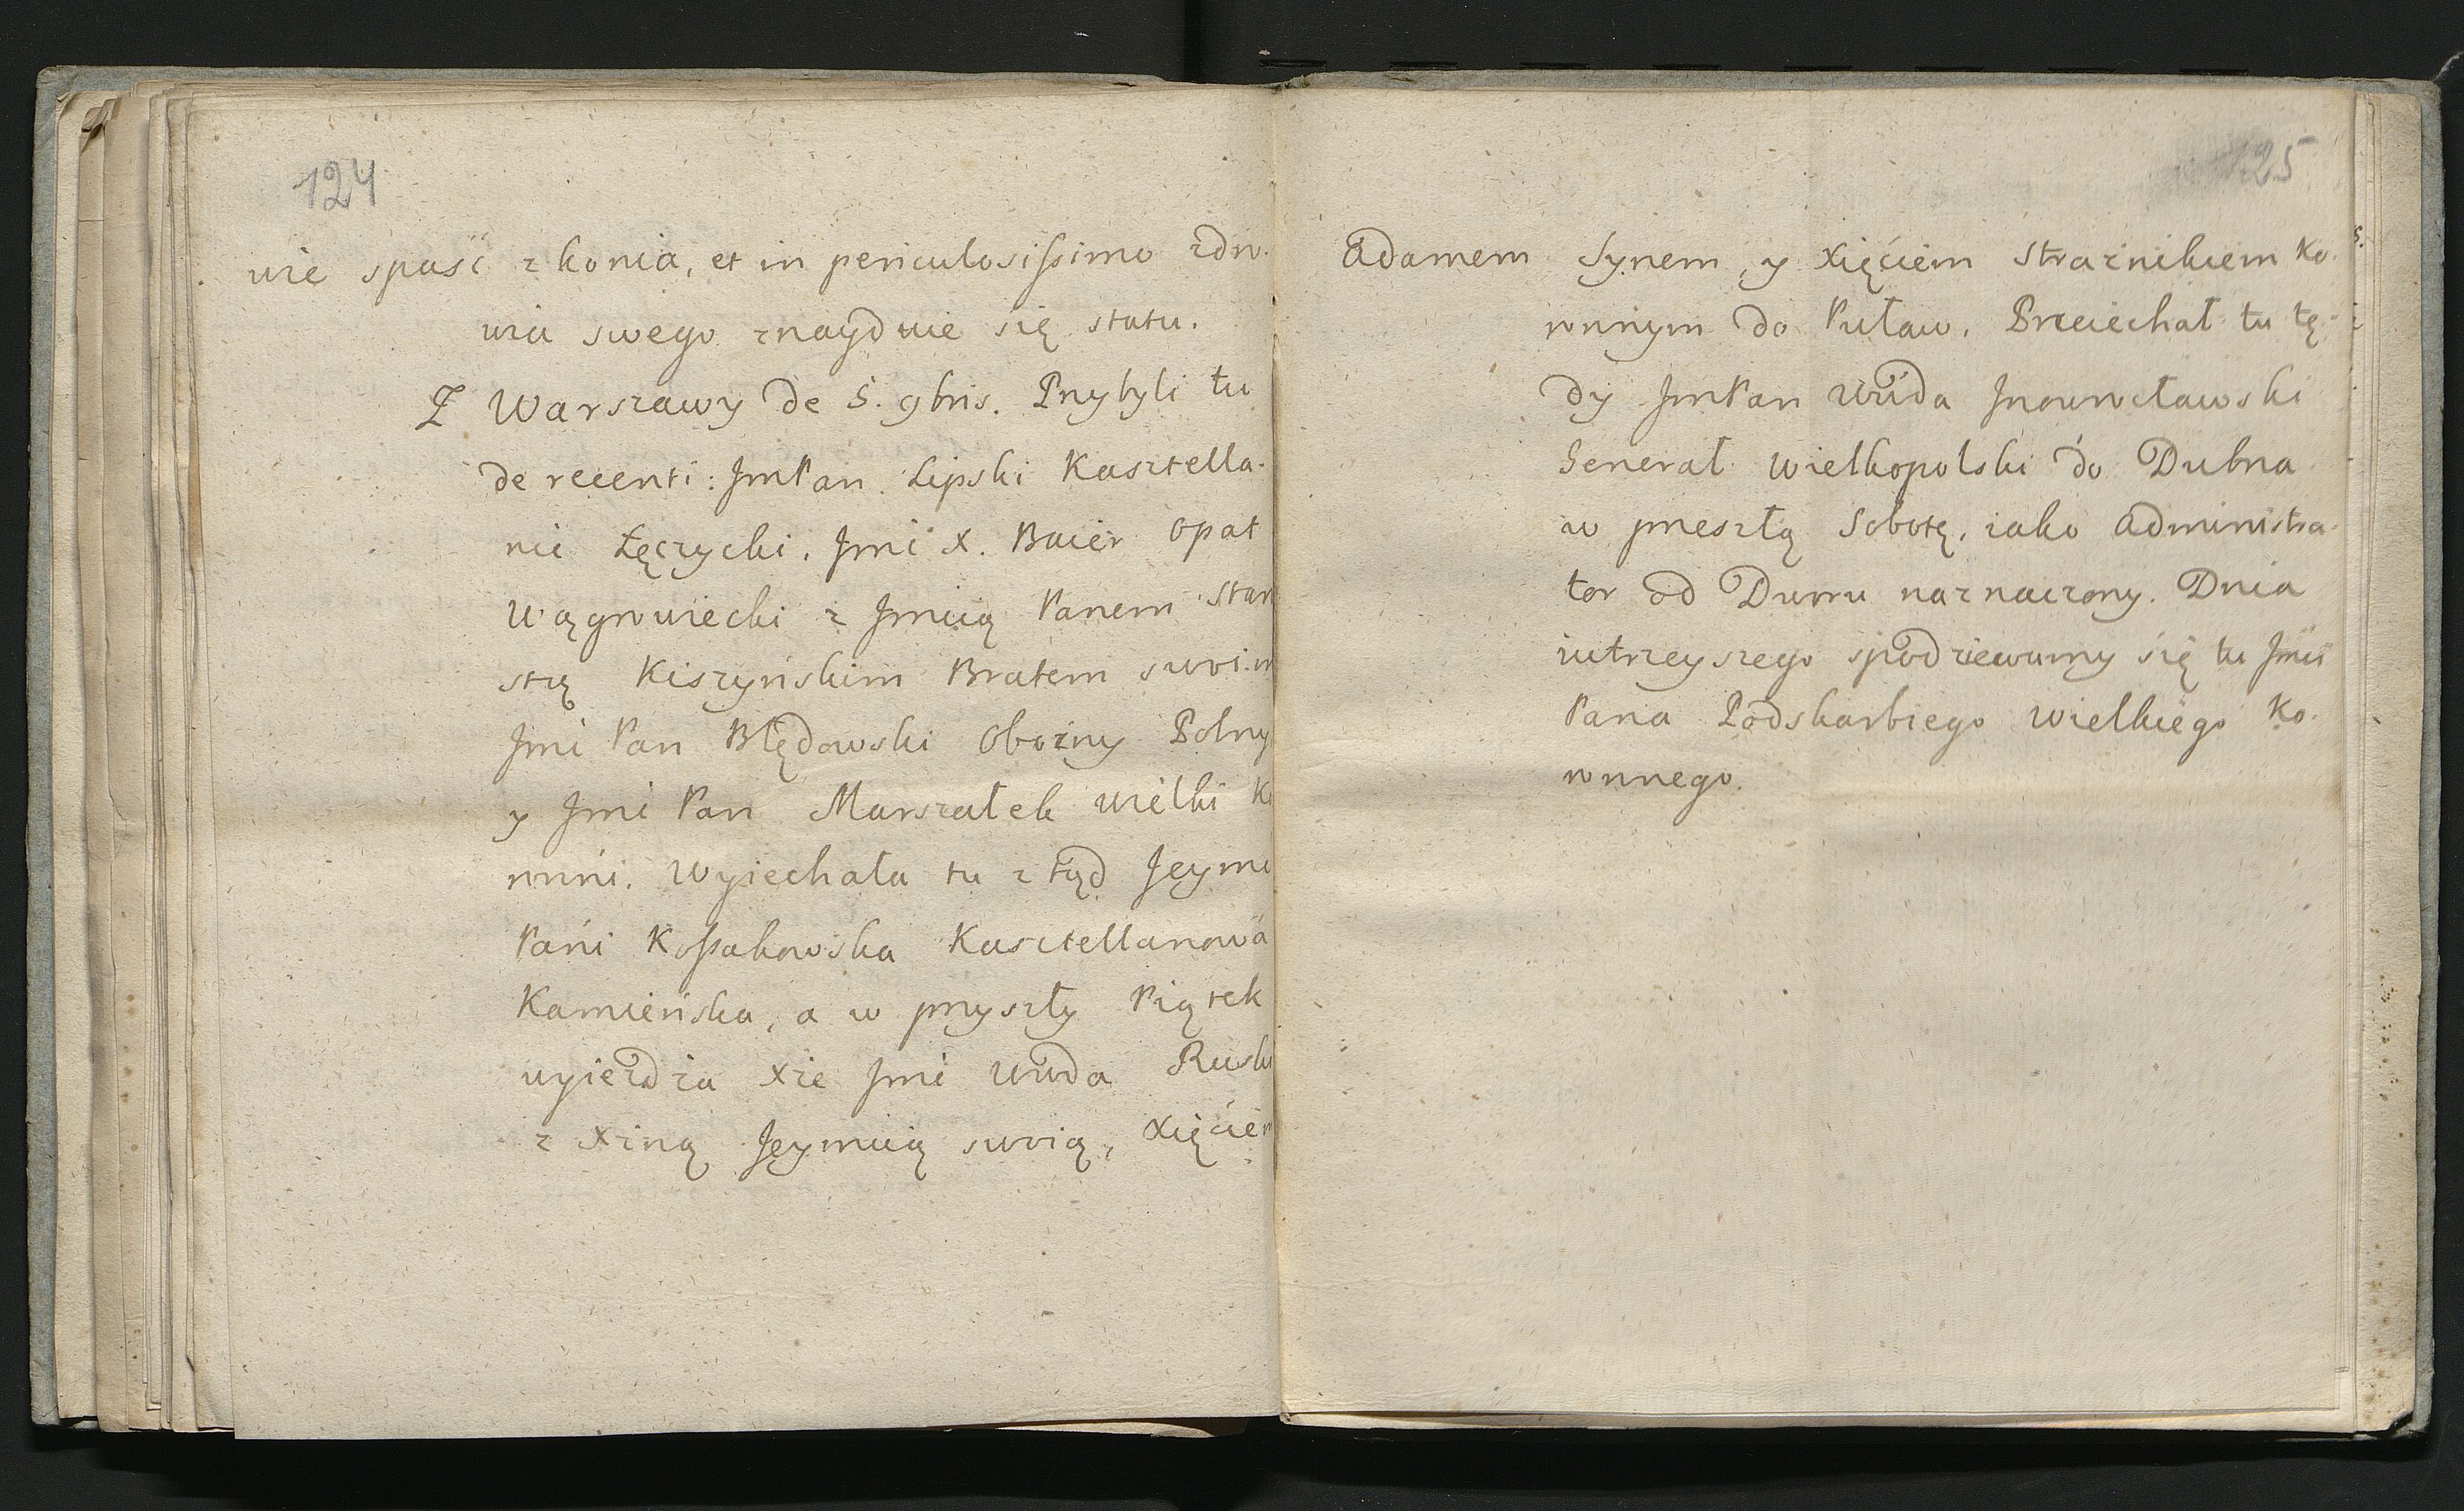 124
wie spaść z konia, et in periculosissimo zdro-
wia swego znayduie się statu.
Z Warszawy de 5. 9bris. Przybyli tu
de recenti: JmPan Lipski Kasztella-
nic Łęczycki, Jmć X. Baier Opat
Wągrowiecki z Jmcią Panem Staro
stą Kiszyńskim Bratem swoim
Jmć Pan Błędowski Oboźny Polny
y Jmć Pan Marszałek wielki Ko
ronni. Wyiechała tu z tąd Jeymć
Pani Kossakowska Kasztellanowa
Kamieńska, a w przyszły Piątek
wyieżdża Xże Jmć Wwda Ruski
z Xżną Jeymcią swoią, Xięciem
125
Adamem Synem, y Xięciem Strażnikiem Ko-
ronnym do Puław. Przeiechał tu tę-
dy JmPan Wwda Jnowrocławski
Generał Wielkopolski do Dubna
w przeszłą Sobotę, iako Administra-
tor od Dworu naznaczony. Dnia
iutrzeyszego spodziewamy się tu Jmci
Pana Podskarbiego Wielkiego Ko-
ronnego.